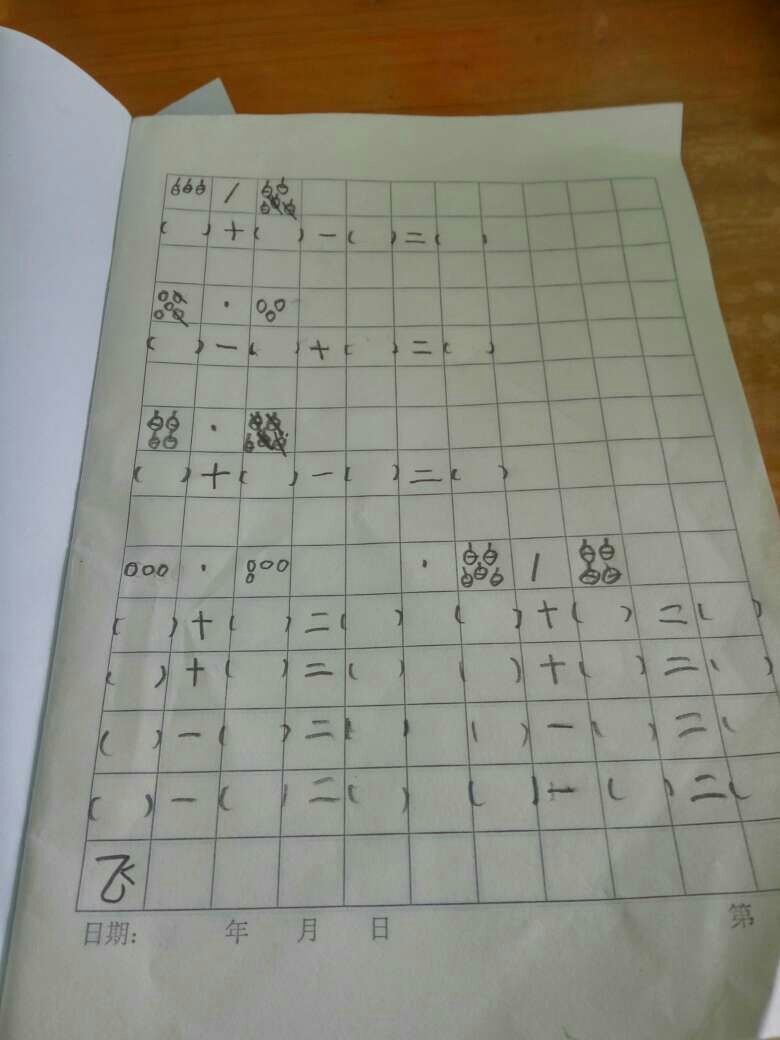 ( ) + ( ) － ( ) = ( )
( ) － ( ) + ( ) = ( )
( ) + ( ) － ( ) = ( )
( ) + ( ) = ( ) ( ) + ( ) = ( )
( ) + ( ) = ( ) ( ) + ( ) = ( )
( ) － ( ) = ( ) ( ) － ( ) = (
( ) － ( ) = ( ) ( ) － ( ) = (
飞
日期: 年 月 日 第